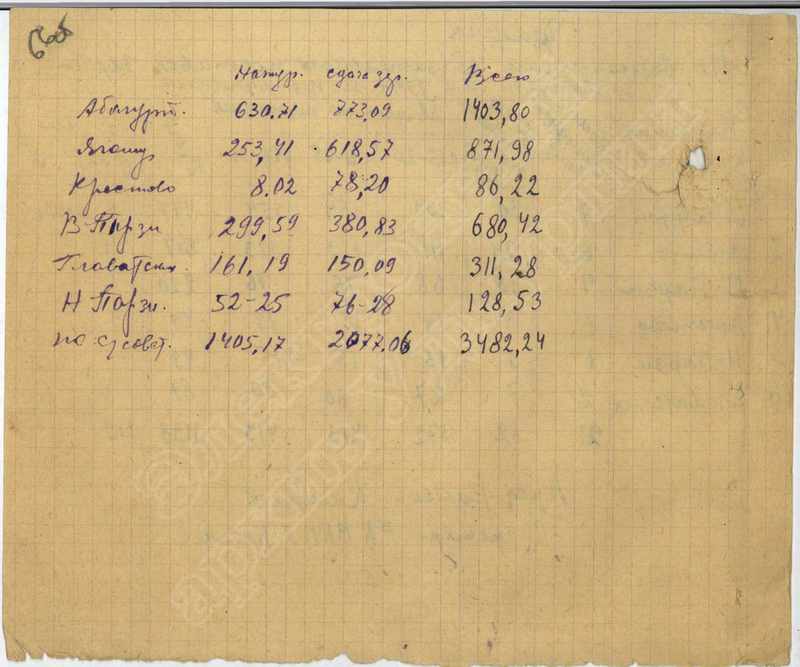 6 об
Натур. сдача зер. Всего
Абагурт. 630.71 773,09 1403,80
Ягошур 253,41 618,57 871,98
Кростово 8.02 78,20 86,22
В-Парзи 299,59 380,83 680,42
Главатских 161,19 150,09 311,28
Н Парзи. 52-25 76-28 128,53
по с/совет. 1405,17 2077.06 3482,24